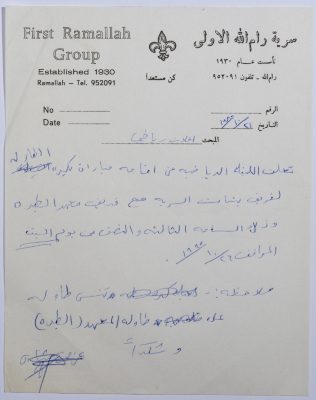 First Ramallah
Group
Established 1930
Ramallah - Tel. 952091
سرية رام الله الاولى
تأسست عام ١٩٣٠
رام الله - تلفون ٩٥٢٠٩١
كن مستعدا
No
Date
الرقم
التاريخ
المبحث
اعلان رياضي
تعلن اللجنة الرياضية عن اقامة مباراة
لفريق بنات السرية مع فريق معهد الطيره
وذلك الساعة الثالثة والنصف من يوم السبت
الموافق
ملاحظة: تنس طاولة
على طاولة المعهد (الطيره)
وشكراً